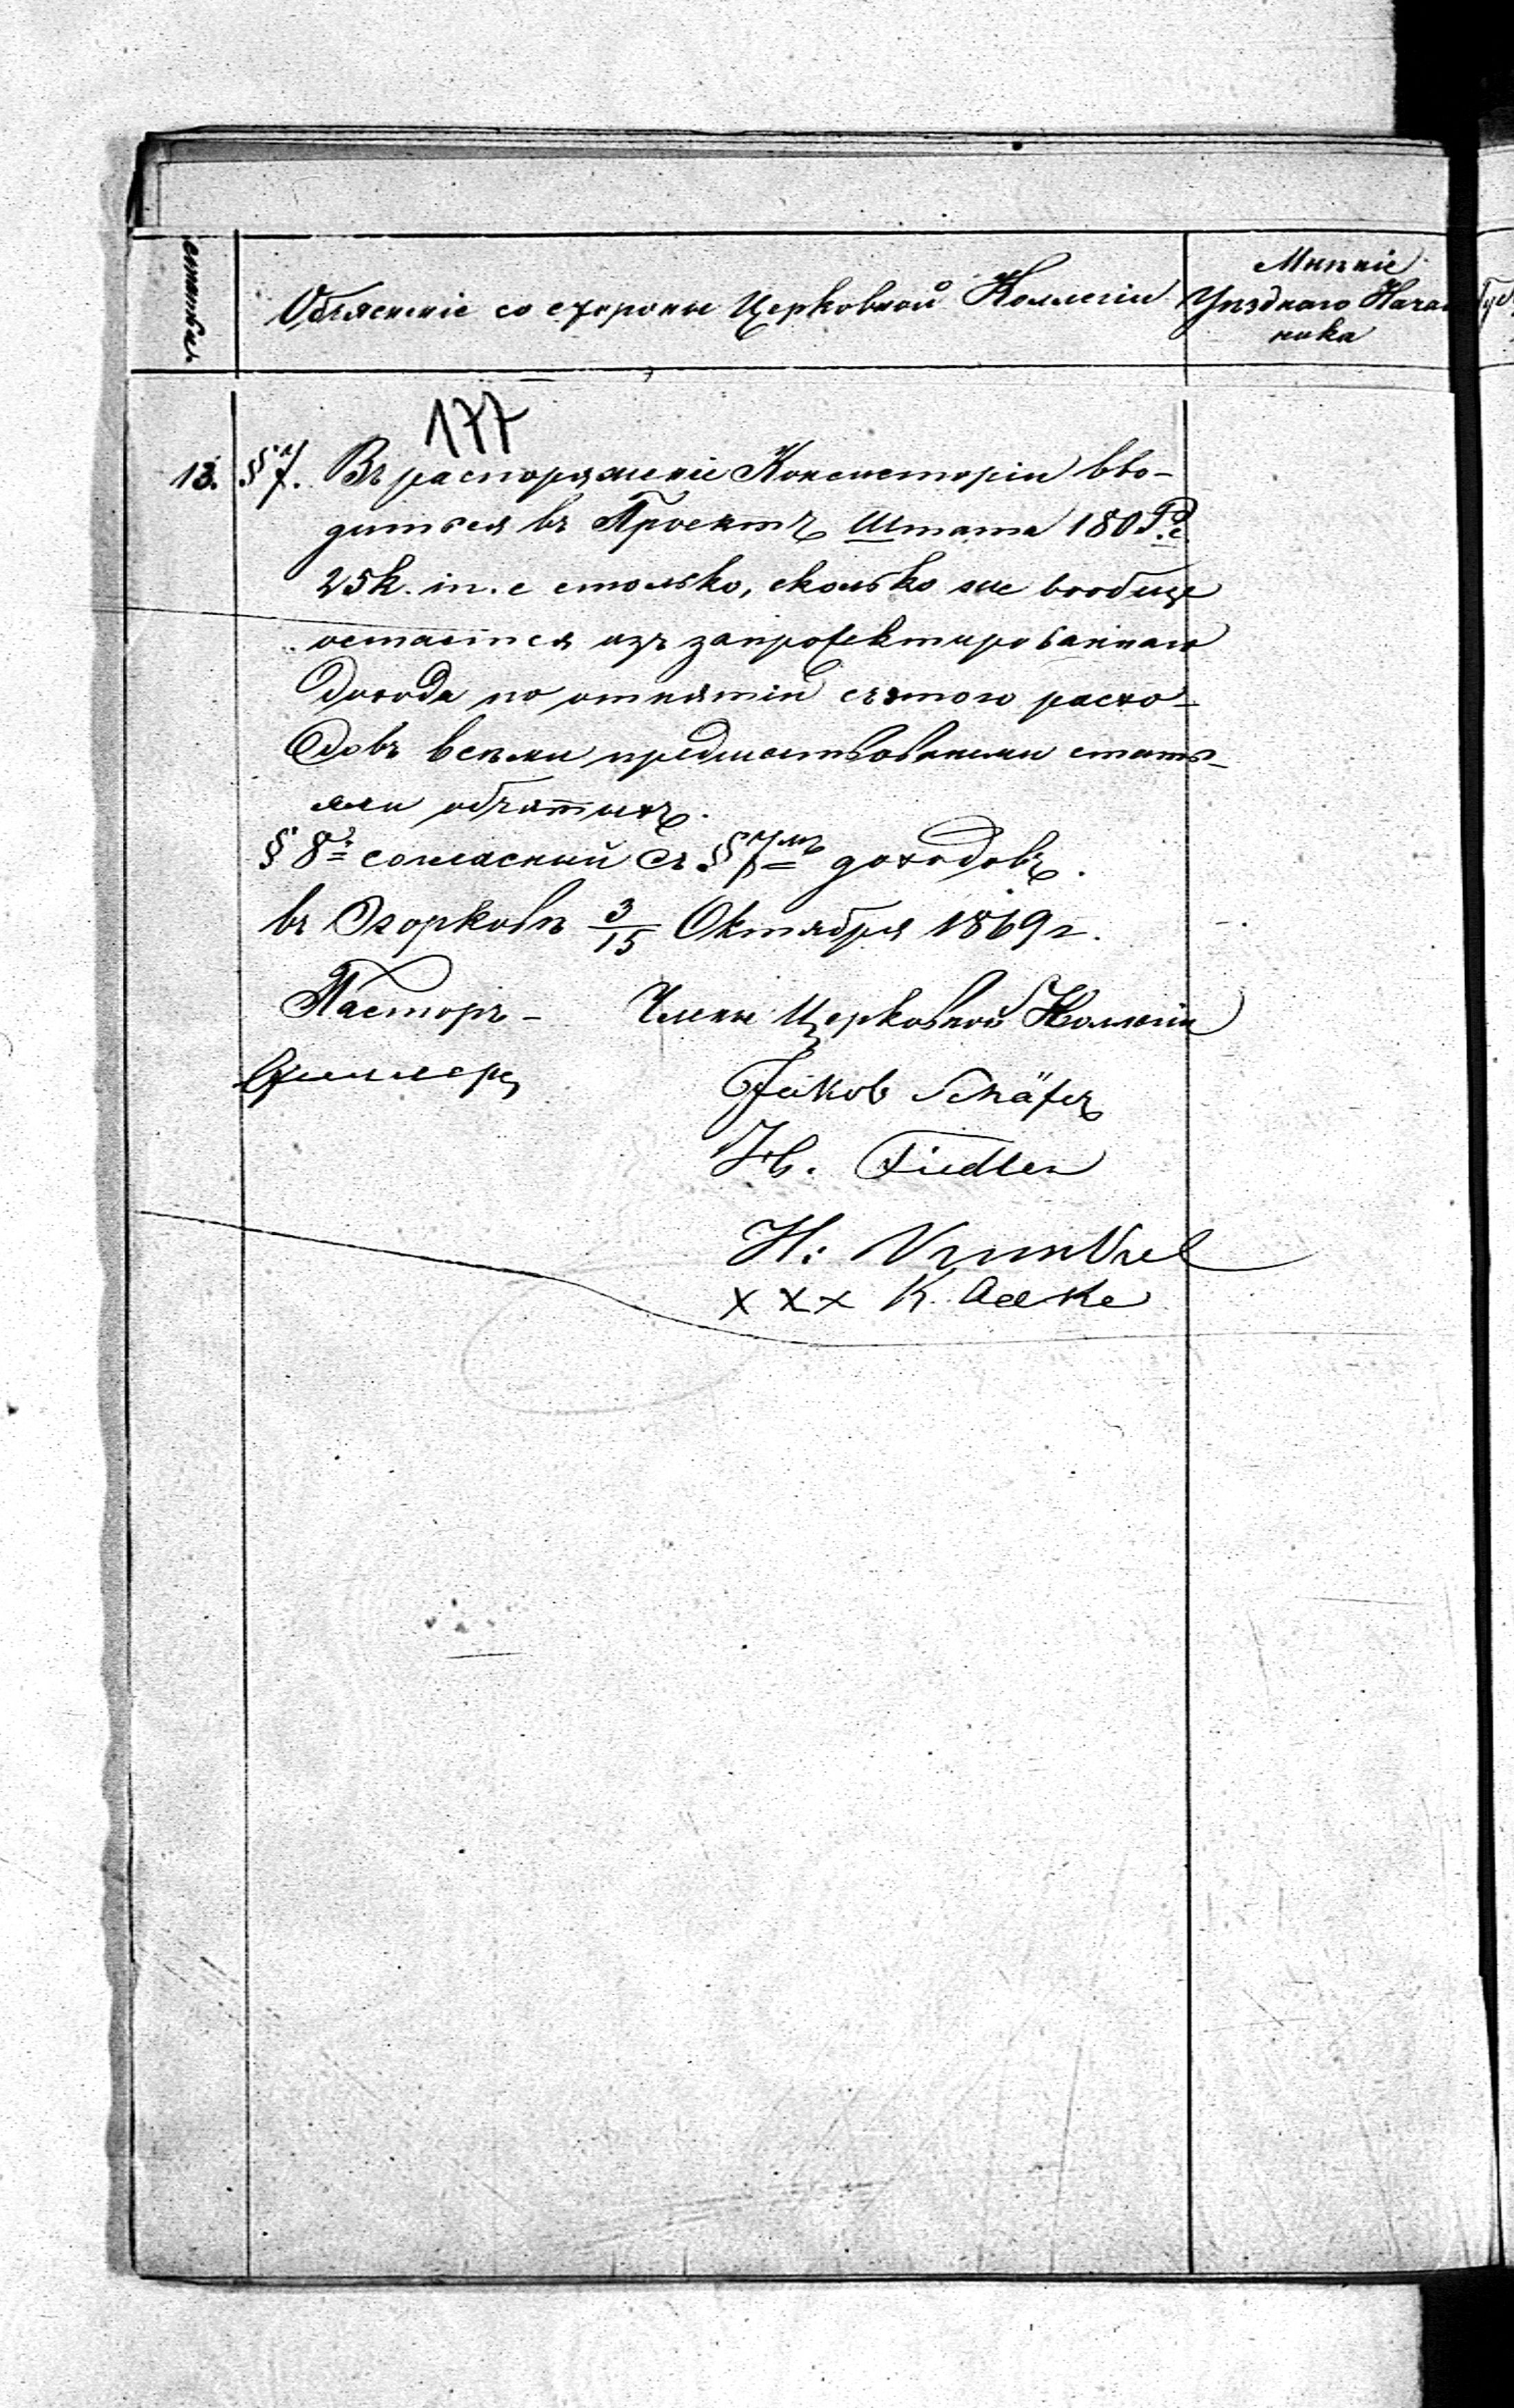 Объясненіе со стороны Церковной Коллегіи
Мнѣніе
Уѣзднаго Начал
ника
177
13. § 7. Въ распоряженіе Консисторіи вво-
дится въ Проектъ Штата 180 Р. с.
25 к. т. е столько, сколько же вообще
остается изъ запроектированнаго
дохода по отнятіи съ этого расхо-
довъ всѣми предшествовавшими стать-
ями обчятыхъ.
§ 8й согласный съ § 7мъ доходовъ.
въ Згорковѣ 3/15 Октября 1869 г.
Пасторъ - Члены Церковной Коллегіи
Jakob Schäfer
Fiedler
H: Krunkel
xxx K. Radke